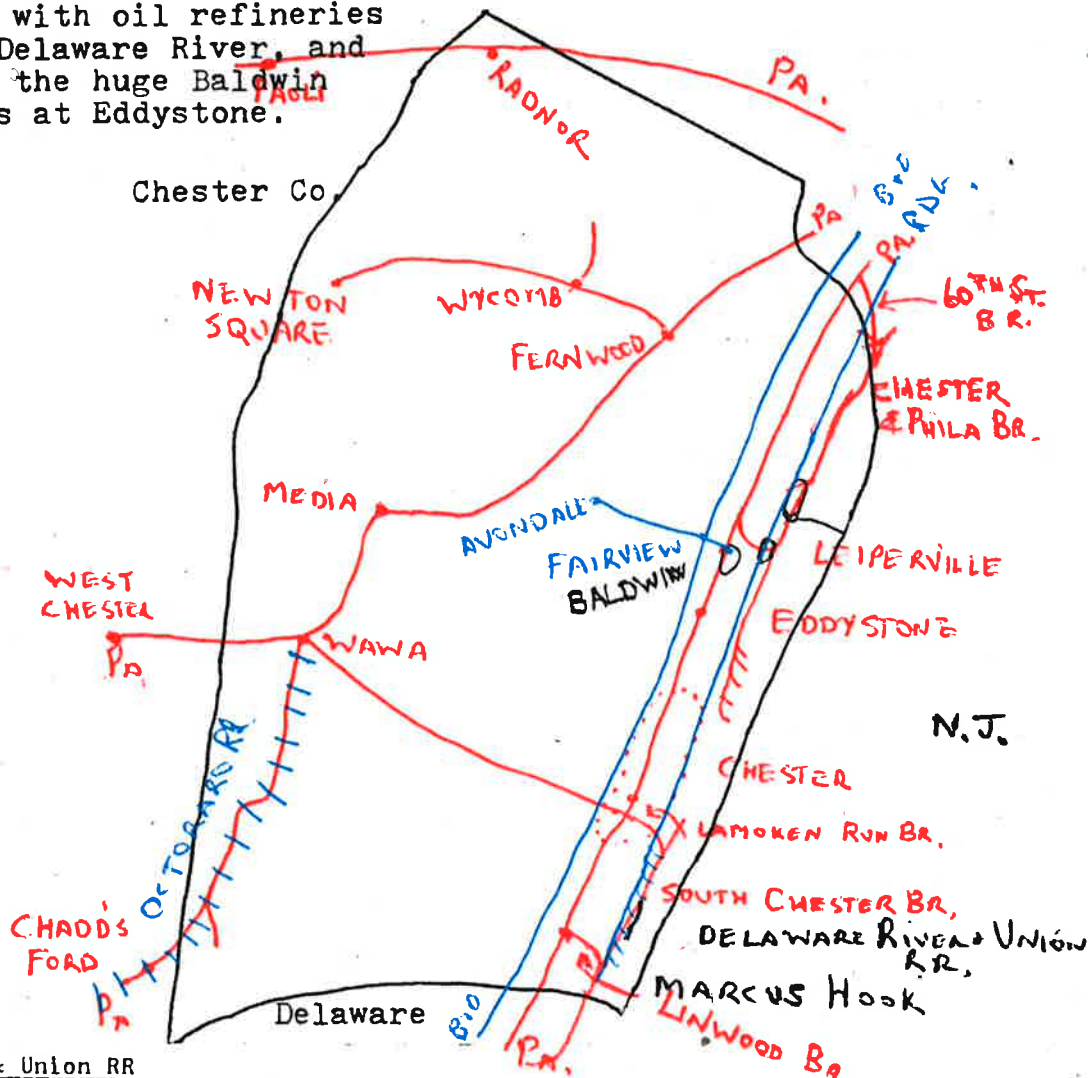 with oil refineries
Delaware River, and
the huge Baldwin
s at Eddystone.
PAOLI
RADNOR
PA.
Chester Co.
B+O
RDG.
PA
PA.
60TH ST.
BR.
NEWTON
SQUARE
WYCOMB
FERNWOOD
CHESTER
& PHILA BR.
MEDIA
AVONDALE
FAIRVIEW
BALDWIN
LEIPERVILLE
EDDYSTONE
WEST
CHESTER
PA
WAWA
N.J.
OCTORARO RR
CHESTER
LAMOKEN RUN BR.
SOUTH CHESTER BR,
DELAWARE RIVER & UNION
RR.
CHADD'S
FORD
PA
MARCUS HOOK
LINWOOD BR
Delaware
B+O
PA.
Union RR